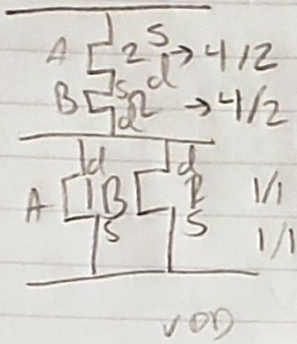 A 2 S → 4/2
d
B S 2 → 4/2
d
d d
A 1 B 1/1
S S 1/1
VDD